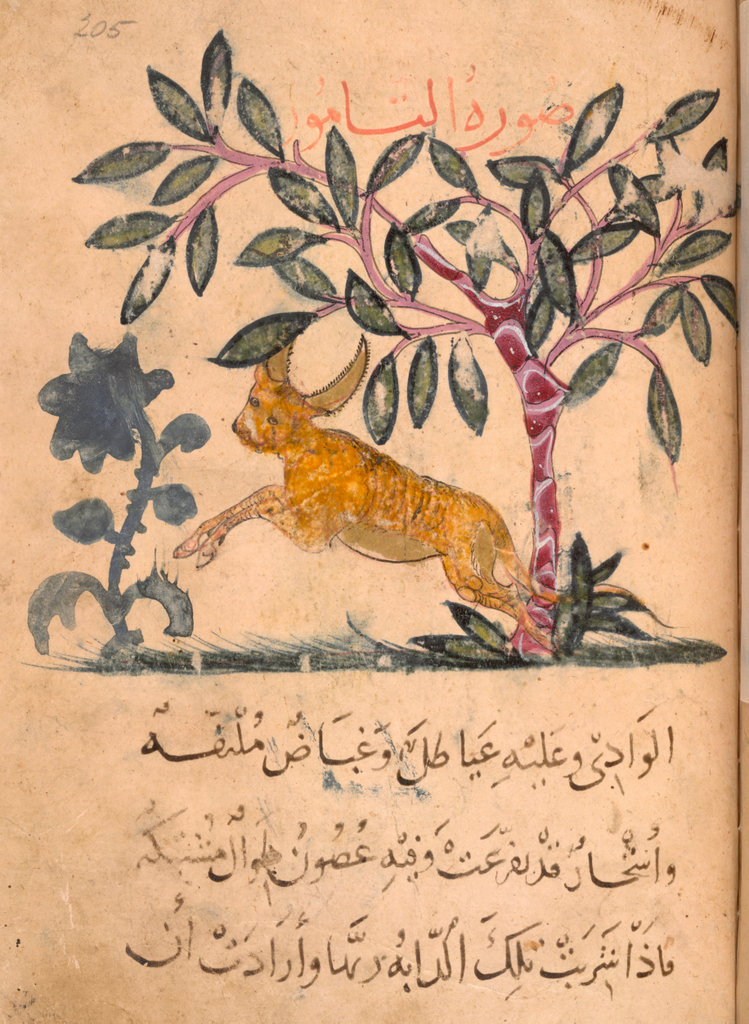 205
صورة التامور
الوادي وعليه عياطل وغياض ملتفه
وأشجار قد تفرعت وفيه غصون طوال مشتبكة
فاذا شربت تلك الدابه ريها وأرادت أن